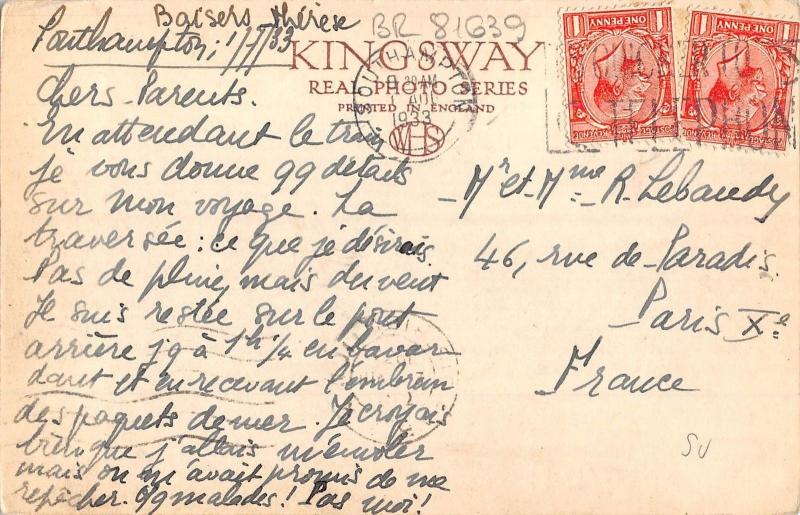 Baisers Thérèse
BR 81639
Southampton, 1/7/33
KINGSWAY
REAL PHOTO SERIES
PRINTED IN ENGLAND
WHS
SOUTHAMPTON
30 AM
1933
1 ONE PENNY 1
1 ONE PENNY 1
Chers Parents.
En attendant le train
je vous donne qq détails
sur mon voyage. La
traversée : ce que je désirais.
Pas de pluie, mais du vent
Je suis restée sur le pont
arrière jq à 1h 1/4 en bavar-
dant et en recevant l'embrun
des paquets de mer. Je croyais
bien que j'allais m'envoler
mais on m'avait promis de me
repêcher. qq malades! Pas moi!
Mr et Mme R. Lebaudy
46, rue de Paradis.
Paris Xe
France
SU